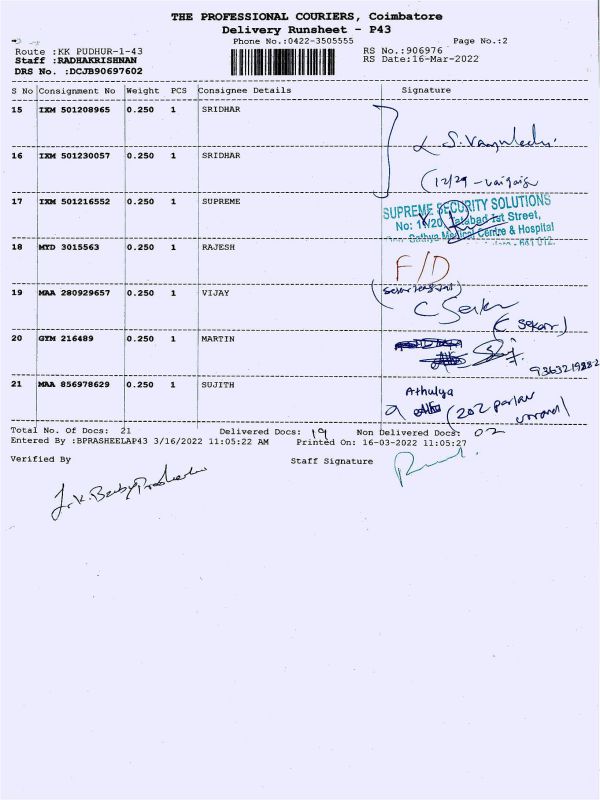 THE PROFESSIONAL COURIERS, Coimbatore
Delivery Runsheet - P43
Phone No.:0422-3505555 Page No.:2
Route :KK PUDHUR-1-43 RS No.:906976
Staff :RADHAKRISHNAN RS Date:16-Mar-2022
DRS No. :DCJB90697602
S No Consignment No Weight PCS Consignee Details Signature
15 IXM 501208965 0.250 1 SRIDHAR
16 IXM 501230057 0.250 1 SRIDHAR
17 IXM 501216552 0.250 1 SUPREME
SUPREME SECURITY SOLUTIONS
Tatabad Ist Street,
Sathya Medical Centre & Hospital
18 MYD 3015563 0.250 1 RAJESH F/D
19 MAA 280929657 0.250 1 VIJAY
C Sekar
(C sekar)
20 GYM 216489 0.250 1 MARTIN
21 MAA 856978629 0.250 1 SUJITH Athulya
Total No. Of Docs: 21 Delivered Docs: 19 Non Delivered Docs: 02
Entered By :BPRASHEELAP43 3/16/2022 11:05:22 AM Printed On: 16-03-2022 11:05:27
Verified By Staff Signature